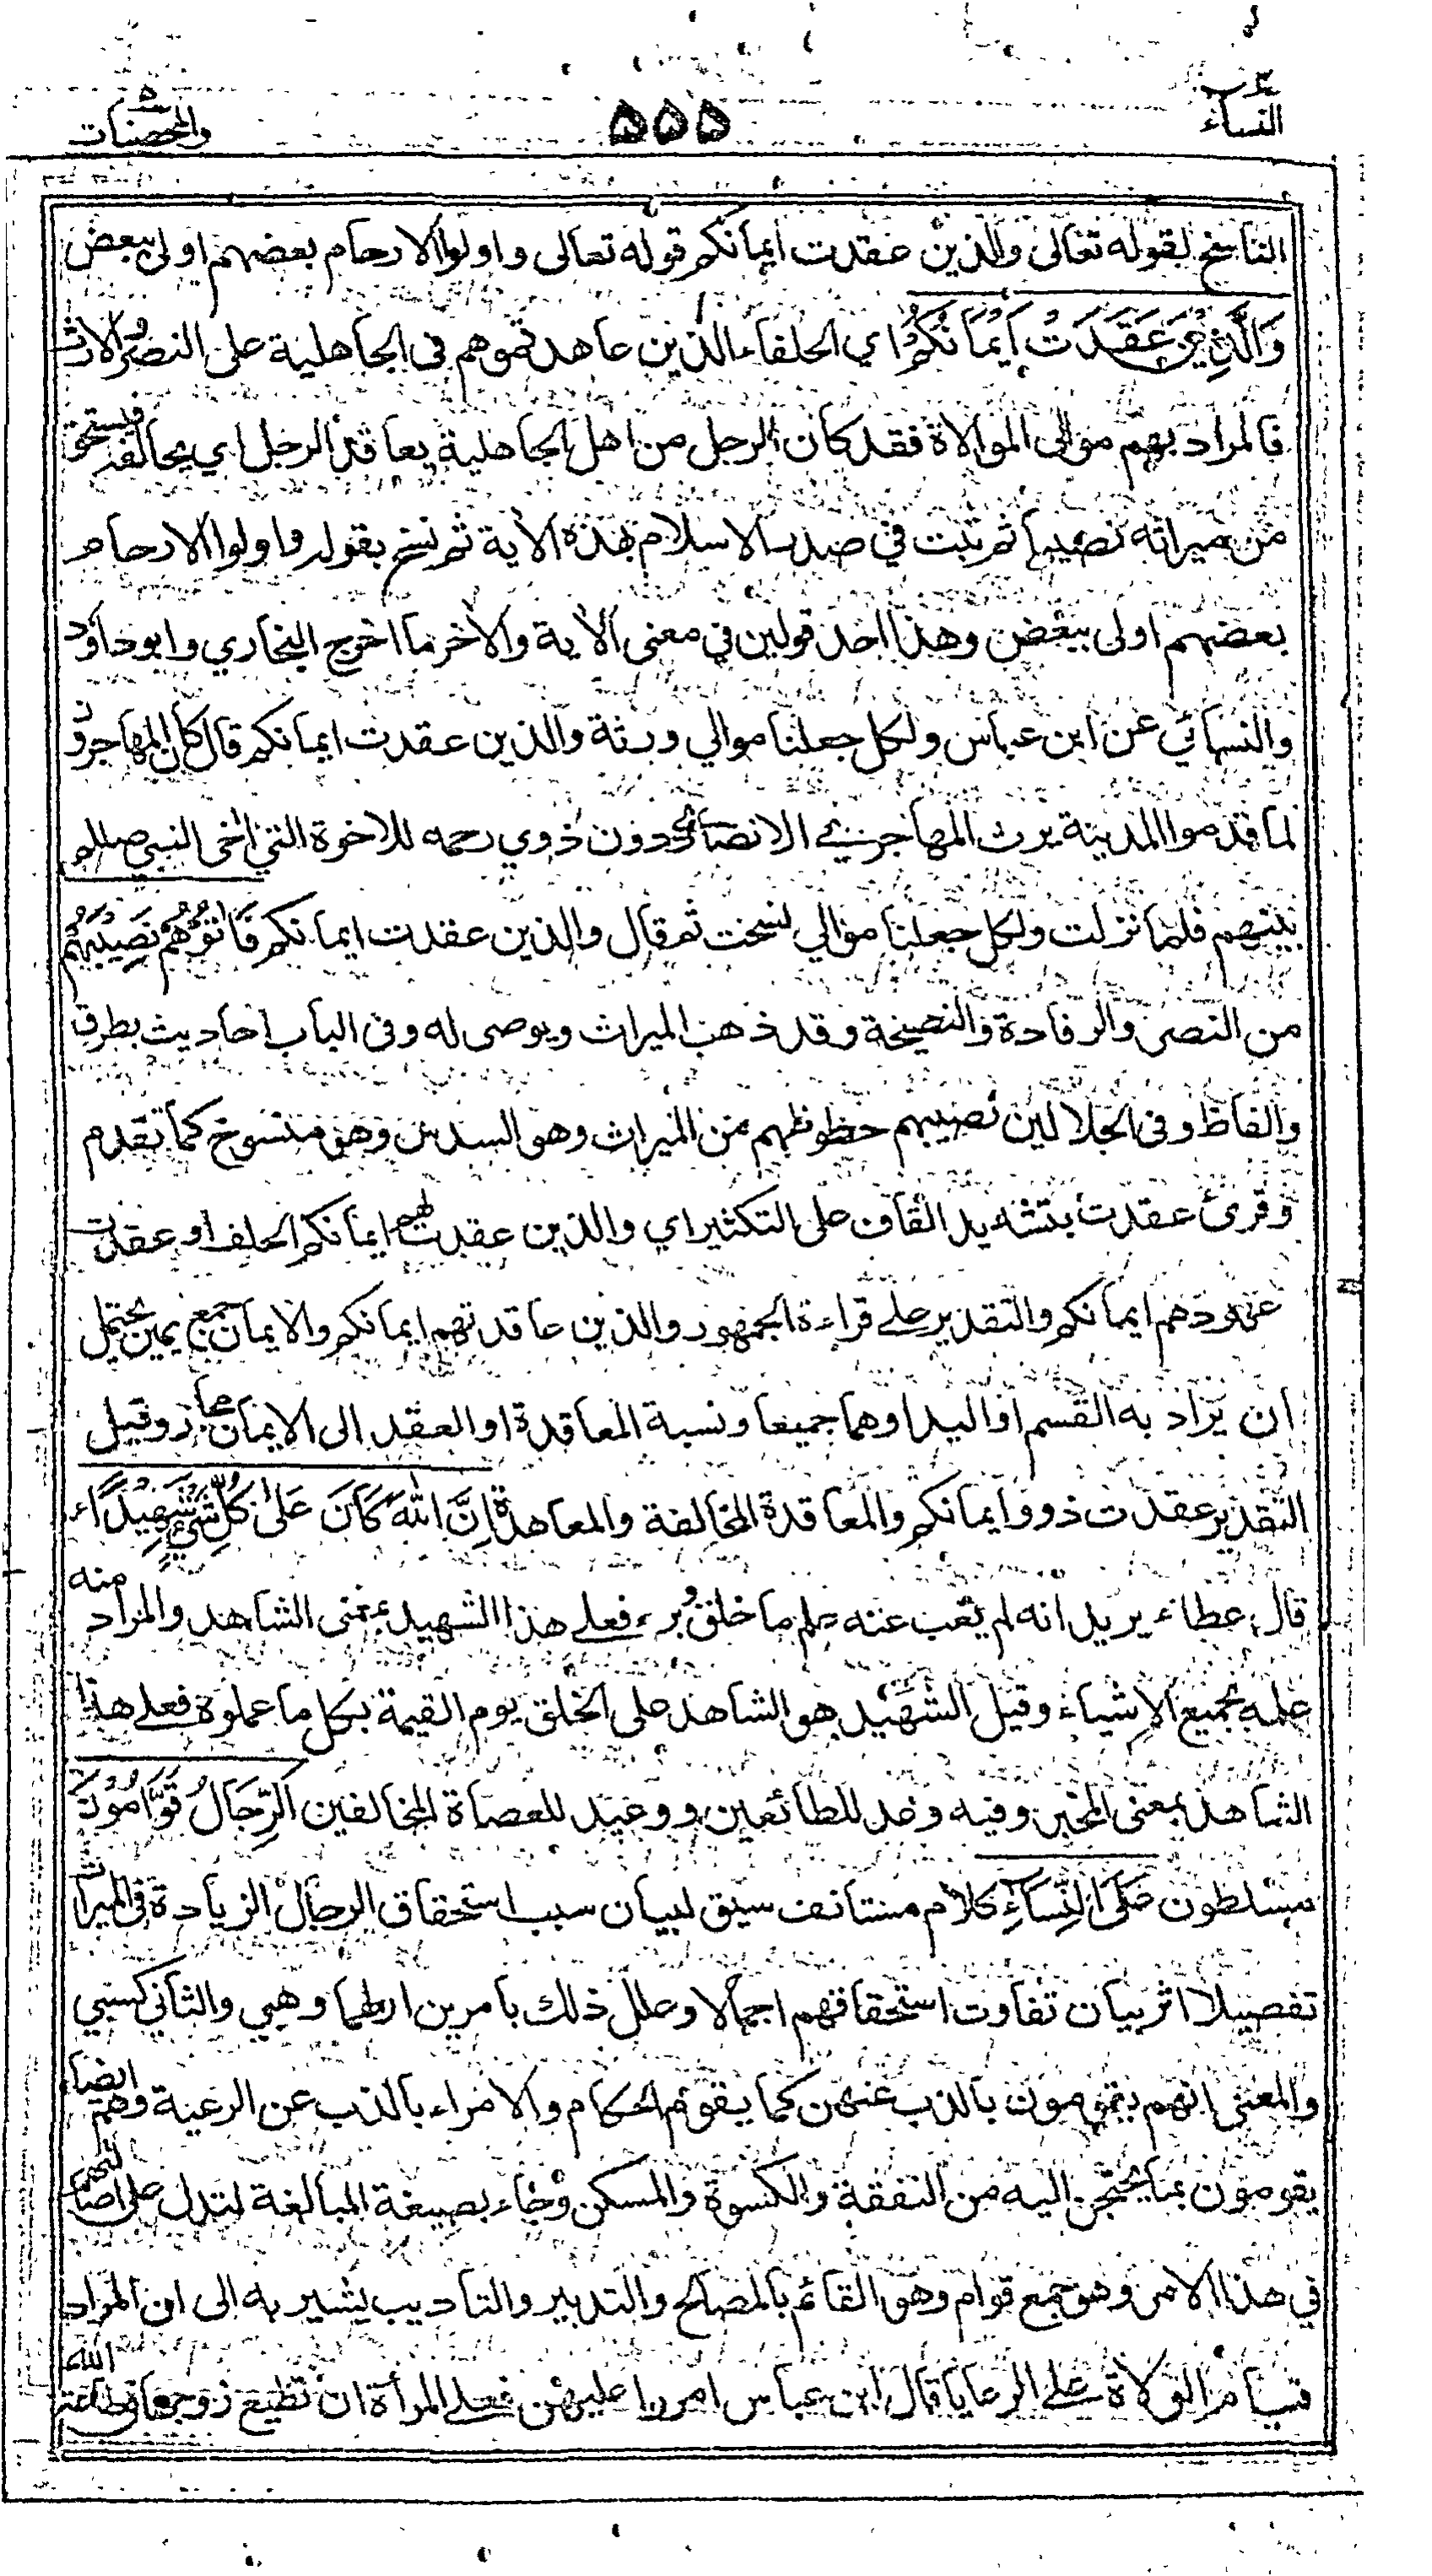 النساء ٤
٥٥٥
والمحصنات ٥
الناسخ لقوله تعالى والذين عقدت ايمانكم قوله تعالى واولوا الارحام بعضهم اولى ببعض
وَالَّذِيْنَ عَقَدَتْ اَيْمَانُكُمْ اي الحلفاء الذين عاهدتموهم في الجاهلية على النصر والارث
فالمراد بهم موالي الموالاة فقد كان الرجل من اهل الجاهلية يعاقد الرجل اي يحالفه فيستحق
من ميراثه نصيبا ثم ثبت في صدر الاسلام بهذه الآية ثم نسخ بقوله واولوا الارحام
بعضهم اولى ببعض وهذا احد قولين في معنى الآية والآخر ما اخرج البخاري وابو داود
والنسائي عن ابن عباس ولكل جعلنا موالي ورثة والذين عقدت ايمانكم قال كان المهاجرون
لما قدموا المدينة يرث المهاجري الانصاري دون ذوي رحمه للاخوة التي آخى النبي صللم
بينهم فلما نزلت ولكل جعلنا موالي نسخت ثم قال والذين عقدت ايمانكم فَاٰتُوْهُمْ نَصِيْبَهُمْ
من النصر والرفادة والنصيحة وقد ذهب الميراث ويوصى له وفي الباب احاديث بطرق
والفاظ وفي الجلالين نصيبهم حظوظهم من الميراث وهو السدس وهو منسوخ كما تقدم
وقرئ عقدت بتشديد القاف على التكثير اي والذين عقدت لهم ايمانكم الحلف او عقدت
عهودهم ايمانكم والتقدير على قراءة الجمهور والذين عاقدتهم ايمانكم والايمان جمع يمين يحتمل
ان يراد به القسم او اليد او هما جميعا ونسبة المعاقدة او العقد الى الايمان مجاز وقيل
التقدير عقدت ذوو ايمانكم والمعاقدة المحالفة والمعاهدة اِنَّ اللّٰهَ كَانَ عَلٰى كُلِّ شَيْءٍ شَهِيْدًا
قال عطاء يريد انه لم يغب عنه علم ما خلق وبرء فعلى هذا الشهيد بمعنى الشاهد والمراد منه
علمه بجميع الاشياء وقيل الشهيد هو الشاهد على الخلق يوم القيمة بكل ما عملوه فعلى هذا
الشاهد بمعنى المخبر وفيه وعد للطائعين ووعيد للعصاة المخالفين اَلرِّجَالُ قَوَّامُوْنَ
مسلطون عَلَى النِّسَآءِ كلام مستانف سيق لبيان سبب استحقاق الرجال الزيادة في الميراث
تفصيلا اثر بيان تفاوت استحقاقهم اجمالا وعلل ذلك بامرين اولهما وهبي والثاني كسبي
والمعنى انهم يقومون بالذب عنهن كما يقوم الحكام والامراء بالذب عن الرعية وهم ايضا
يقومون بما يحتجن اليه من النفقة والكسوة والمسكن وجاء بصيغة المبالغة لتدل على اصالتهم
في هذا الامر وهو جمع قوام وهو القائم بالمصالح والتدبير والتاديب يشير به الى ان المراد
قيام الولاة على الرعايا قال ابن عباس امروا عليهن فعلى المرأة ان تطيع زوجها في طاعة الله